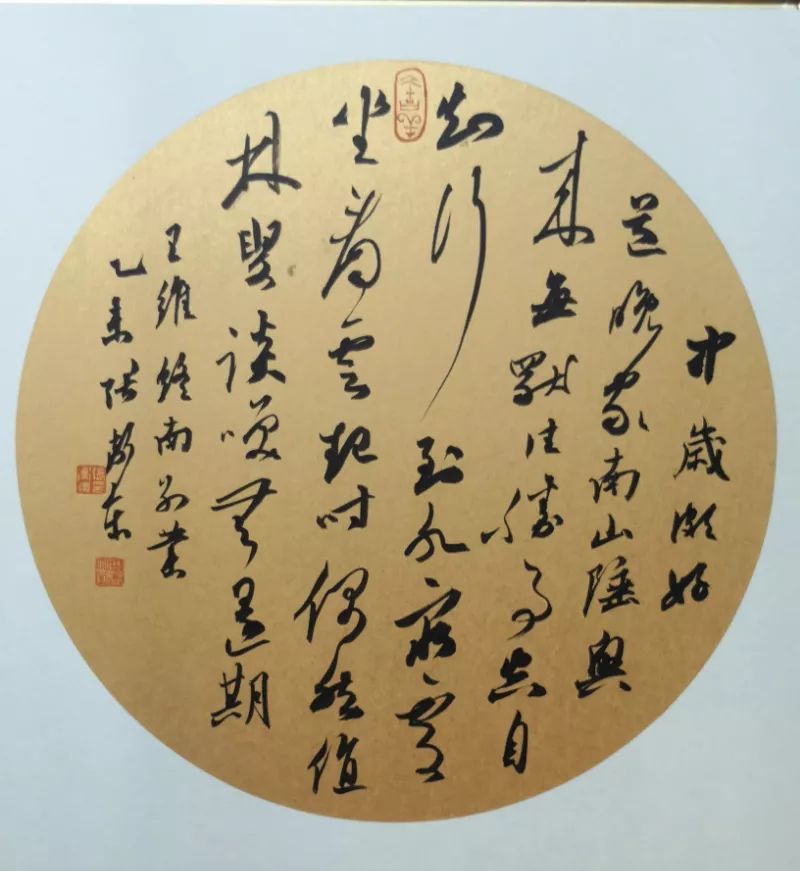 中歲頗好
道晚家南山陲興
來每獨往勝事空自
知行到水窮處
坐看雲起時偶然值
林叟談笑無還期
王維終南別業
乙未張東